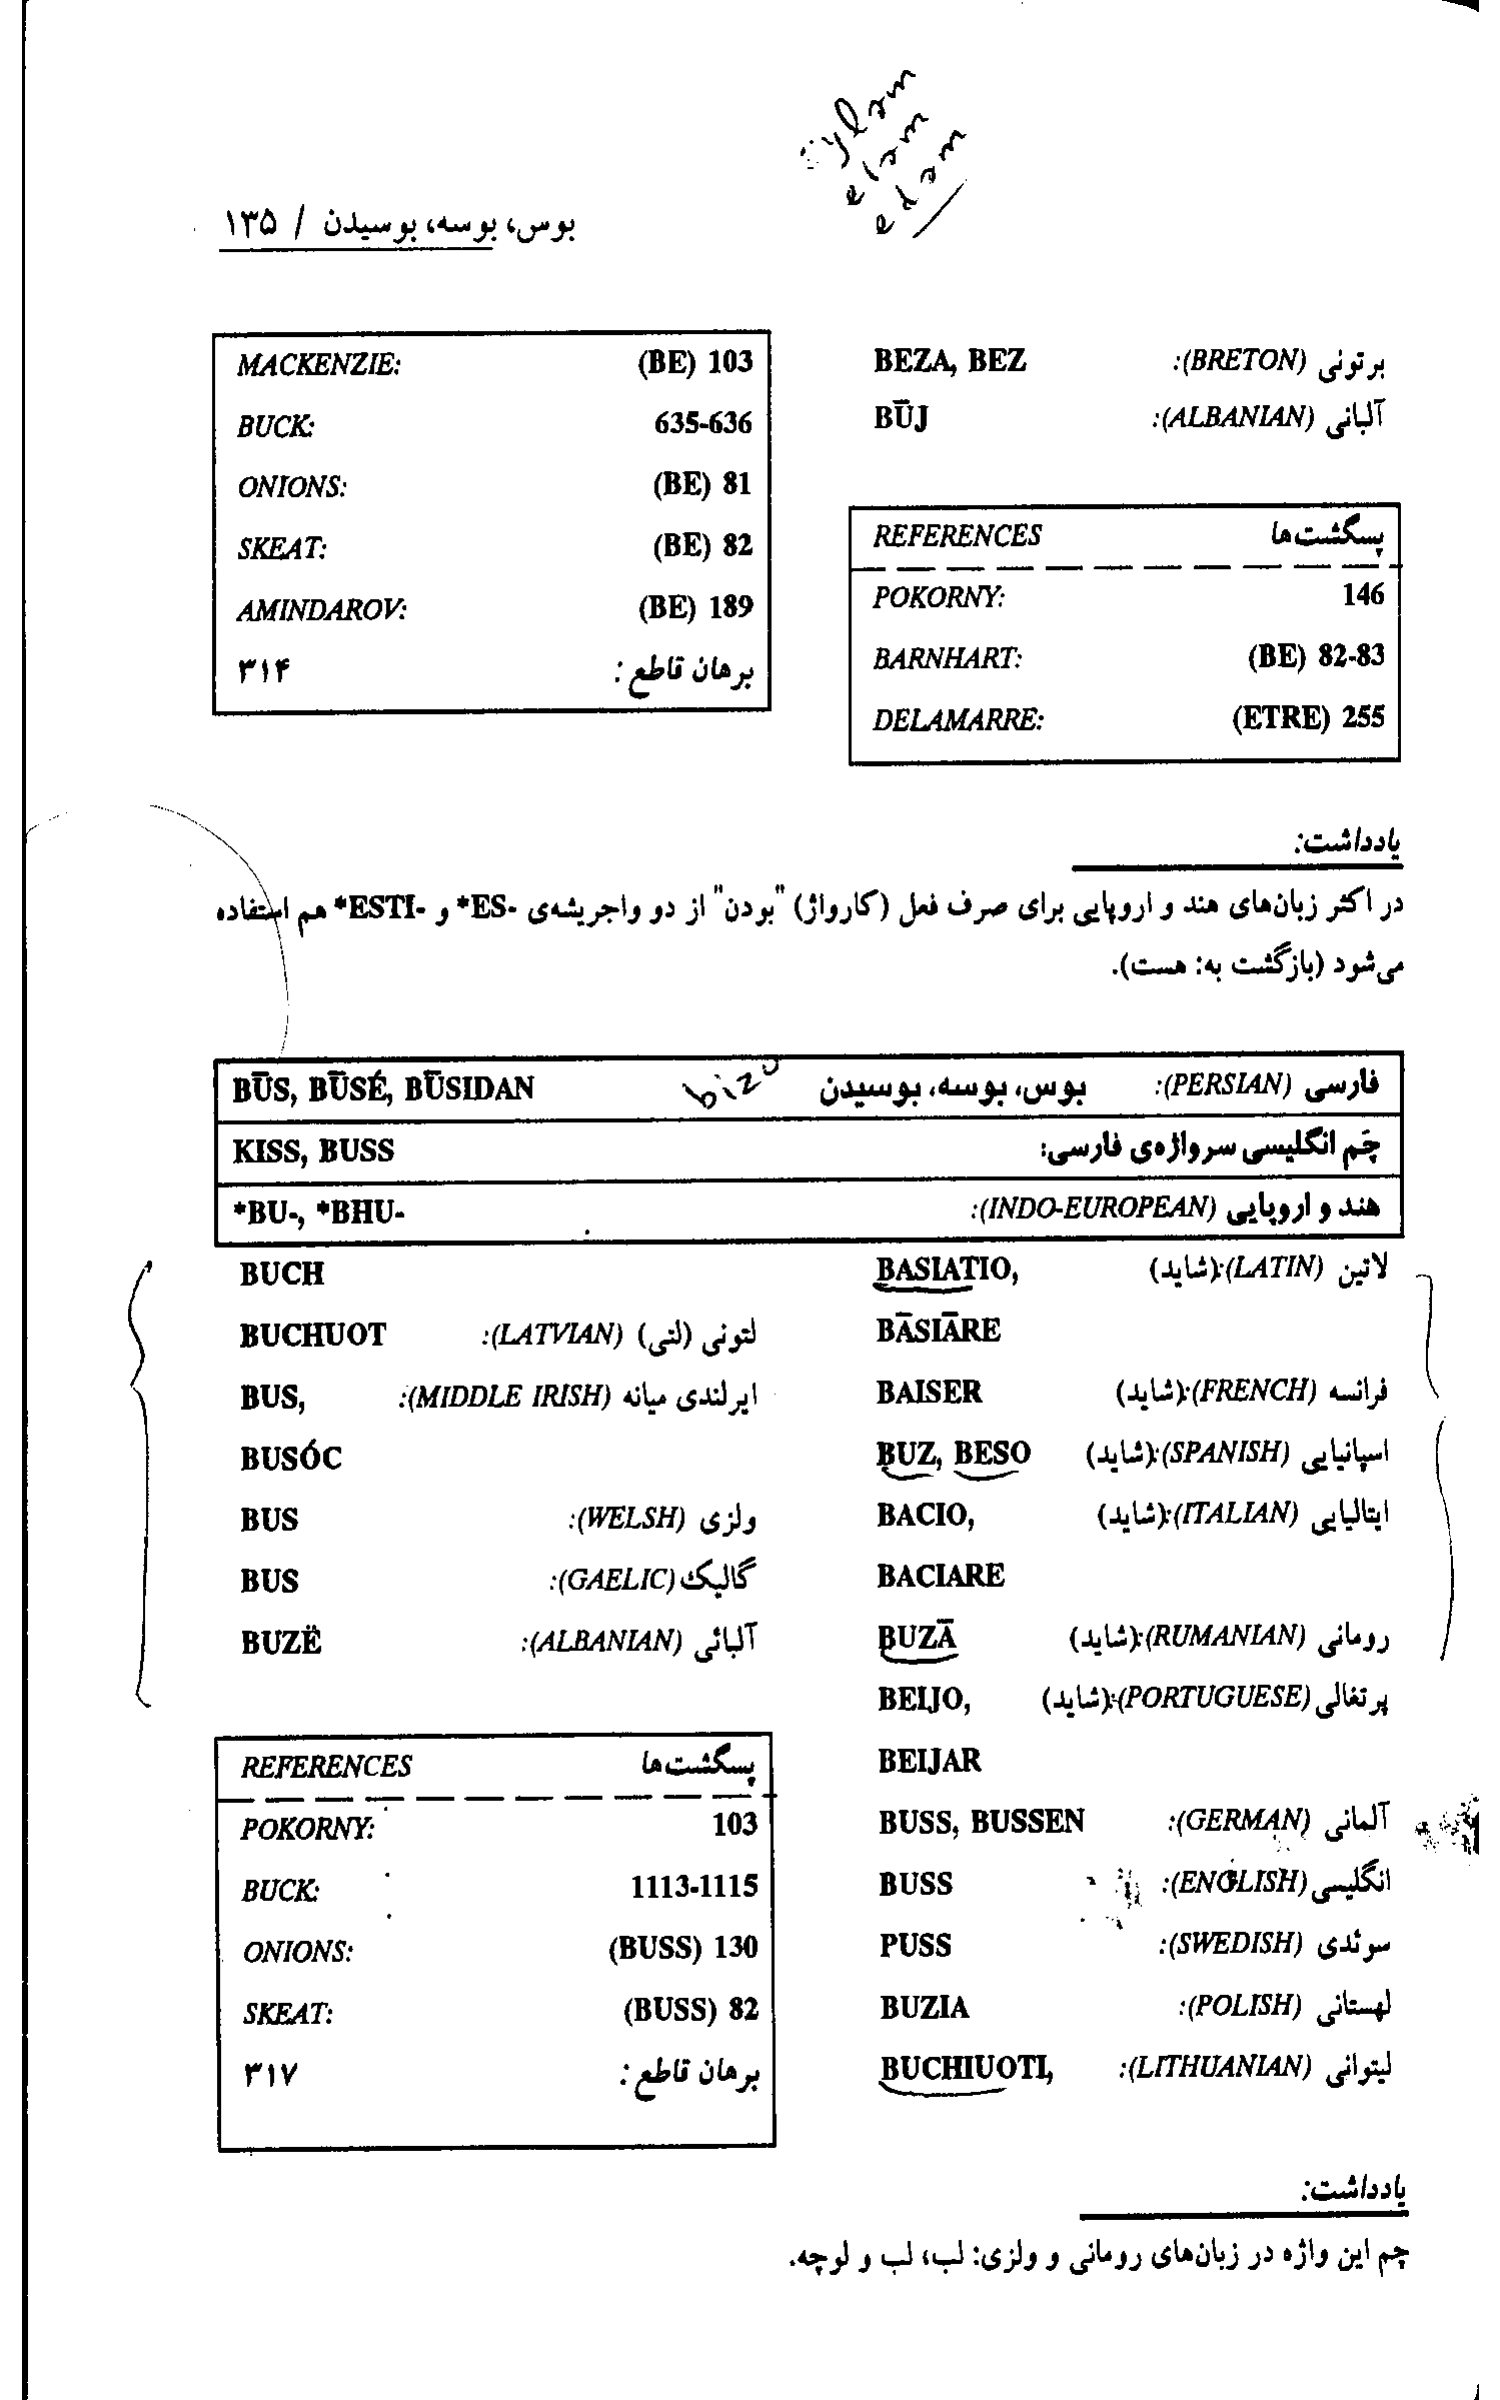 بوس، بوسه، بوسیدن / ۱۳۵
برتونی (BRETON): BEZA, BEZ
آلبانی (ALBANIAN): BŪJ
پسگشت‌ها REFERENCES
POKORNY: 146
BARNHART: (BE) 82-83
DELAMARRE: (ETRE) 255
MACKENZIE: (BE) 103
BUCK: 635-636
ONIONS: (BE) 81
SKEAT: (BE) 82
AMINDAROV: (BE) 189
برهان قاطع : ۳۱۴
یادداشت:
در اکثر زبان‌های هند و اروپایی برای صرف فعل (کارواژ) "بودن" از دو واجریشه‌ی *ES- و *ESTI- هم استفاده
می‌شود (بازگشت به: هست).
فارسی (PERSIAN): بوس، بوسه، بوسیدن BŪS, BŪSÉ, BŪSIDAN
چَم انگلیسی سرواژه‌ی فارسی: KISS, BUSS
هند و اروپایی (INDO-EUROPEAN): *BU-, *BHU-
لاتین (LATIN):(شاید) BASIATIO,
BĀSIĀRE
فرانسه (FRENCH):(شاید) BAISER
اسپانیایی (SPANISH):(شاید) BUZ, BESO
ایتالیایی (ITALIAN):(شاید) BACIO,
BACIARE
رومانی (RUMANIAN):(شاید) BUZĀ
پرتغالی (PORTUGUESE):(شاید) BEIJO,
BEIJAR
آلمانی (GERMAN): BUSS, BUSSEN
انگلیسی (ENGLISH): BUSS
سوئدی (SWEDISH): PUSS
لهستانی (POLISH): BUZIA
لیتوانی (LITHUANIAN): BUCHIUOTI,
BUCH
لتونی (لتی) (LATVIAN): BUCHUOT
ایرلندی میانه (MIDDLE IRISH): BUS,
BUSÓC
ولزی (WELSH): BUS
گالیک (GAELIC): BUS
آلبانی (ALBANIAN): BUZË
پسگشت‌ها REFERENCES
POKORNY: 103
BUCK: 1113-1115
ONIONS: (BUSS) 130
SKEAT: (BUSS) 82
برهان قاطع : ۳۱۷
یادداشت:
چم این واژه در زبان‌های رومانی و ولزی: لب، لب و لوچه.